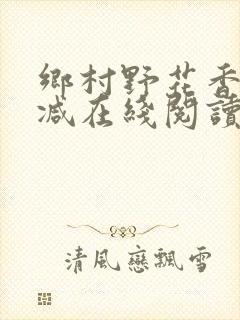 鄉村野花香
减在綫閱讀
清風戀飄雪